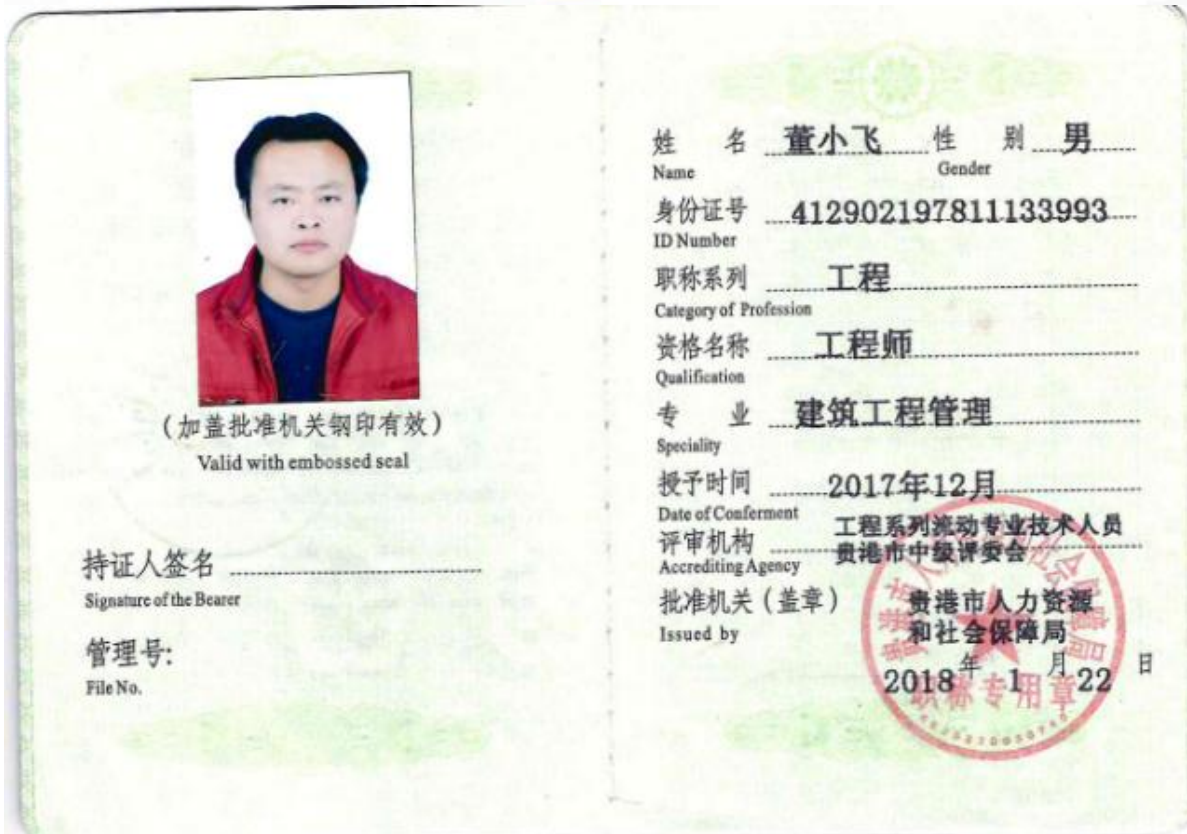 (加盖批准机关钢印有效)
Valid with embossed seal
持证人签名
Signature of the Bearer
管理号:
File No.
姓 名 董小飞 性 别 男
Name Gender
身份证号 412902197811133993
ID Number
职称系列 工程
Category of Profession
资格名称 工程师
Qualification
专 业 建筑工程管理
Speciality
授予时间 2017年12月
Date of Conferment
工程系列流动专业技术人员
评审机构 贵港市中级评委会
Accrediting Agency
批准机关(盖章) 贵港市人力资源
Issued by 和社会保障局
2018年1月22日
贵港市人力资源和社会保障局
职称专用章